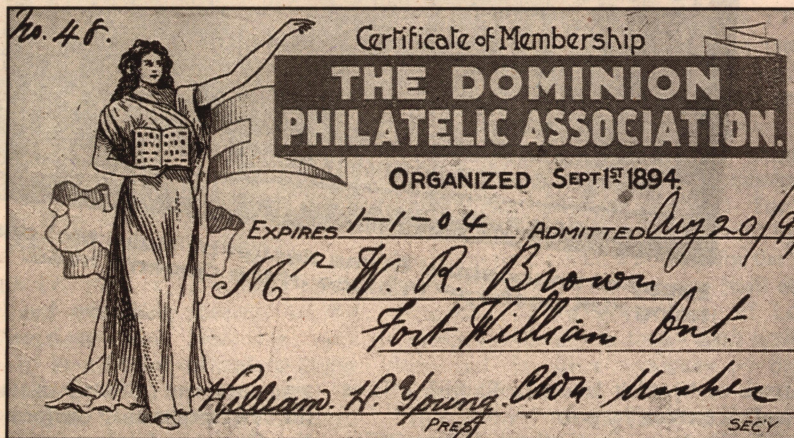 No. 48.
Certificate of Membership
THE DOMINION
PHILATELIC ASSOCIATION.
ORGANIZED SEPT 1ST 1894.
EXPIRES 1-1-04 ADMITTED Aug 20/9
Mr W. R. Brown
Fort William Ont.
William. H. Young.
PREST SEC'Y